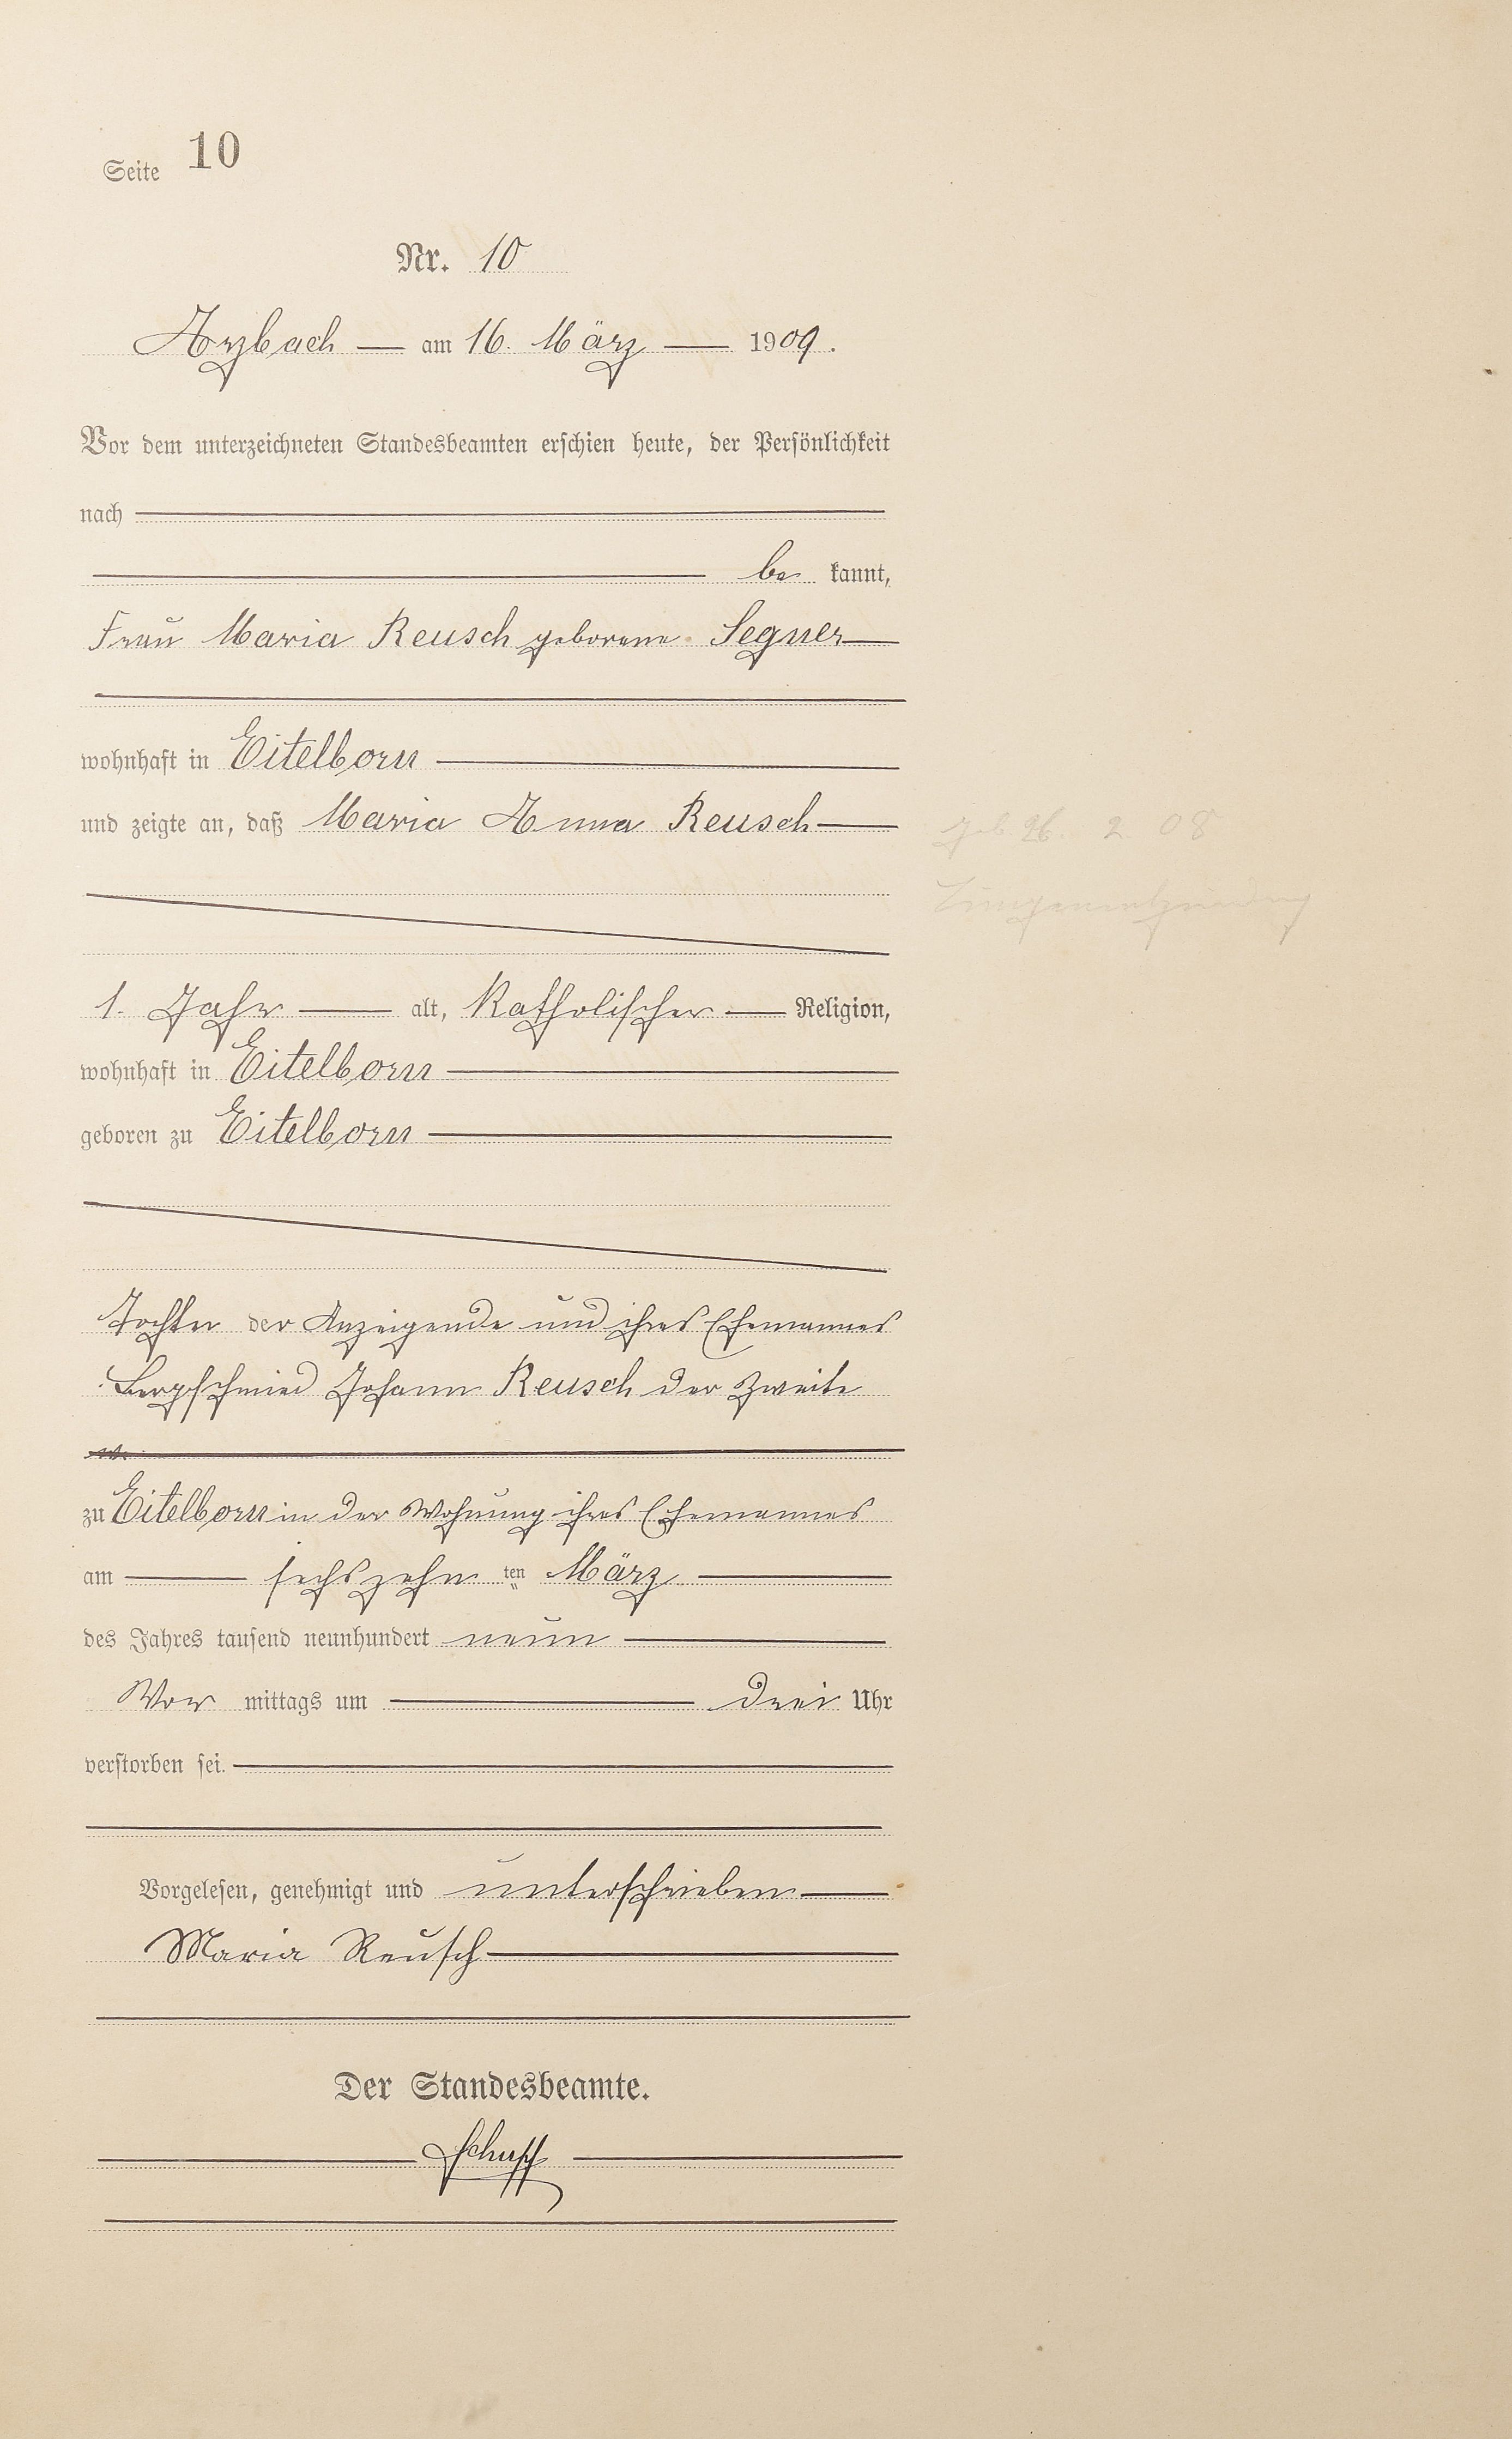 Seite 10
Nr. 10
Arzbach — am 16. März — 1909.
Vor dem unterzeichneten Standesbeamten erschien heute, der Persönlichkeit
nach
be kannt,
Frau Maria Reusch geborene Segner
wohnhaft in Eitelborn
und zeigte an, daß Maria Anna Reusch
geb. 26. 2. 08
Lungenentzündung
1. Jahr — alt, Katholischer — Religion,
wohnhaft in Eitelborn
geboren zu Eitelborn
Tochter der Anzeigende und ihres Ehemannes
Johann Reusch der Zweite
zu Eitelborn in der Wohnung ihres Ehemannes
am sechszehn ten März
des Jahres tausend neunhundert neun
Vor mittags um drei Uhr
verstorben sei.
Vorgelesen, genehmigt und unterschrieben
Maria Reusch
Der Standesbeamte.